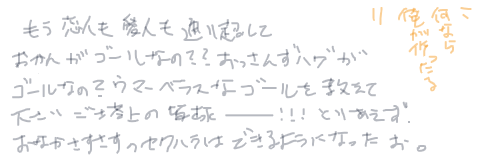 もう恋人も愛人も通り越して
おかんがゴールなの??おっさんずハグが
ゴールなの?ウマーベラスなゴールを教えて
下さいご君上の皆様――!!!とりあえず、
おなかさすさすのセクハラはできるようになったお。
何なら
俺が作ったる